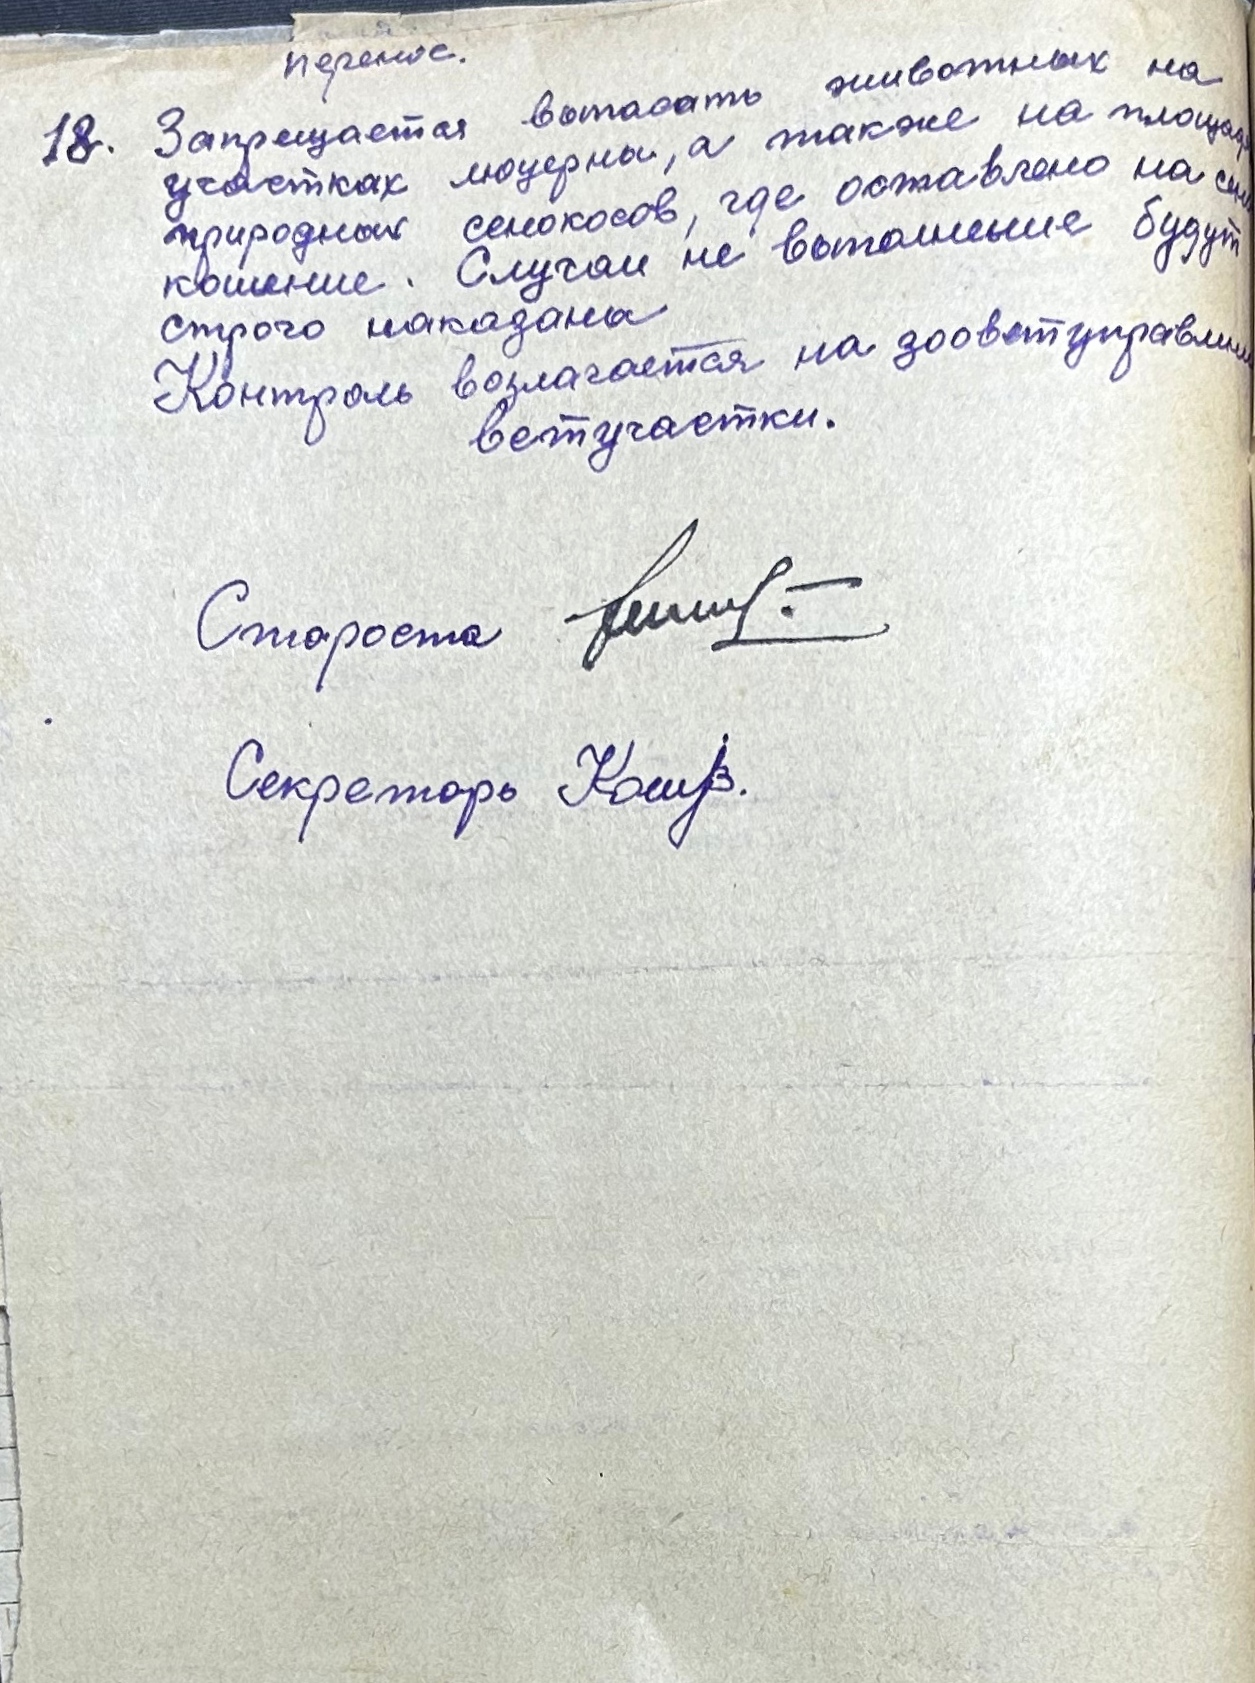 перенос.
18. Запрещается выпасать животных на
участках люцерны, а также на
природных сенокосов, где оставлено на
кошение. Случаи не выполнение будут
строго наказаны
Контроль возлагается на
ветучастки.
Староста
Секретарь